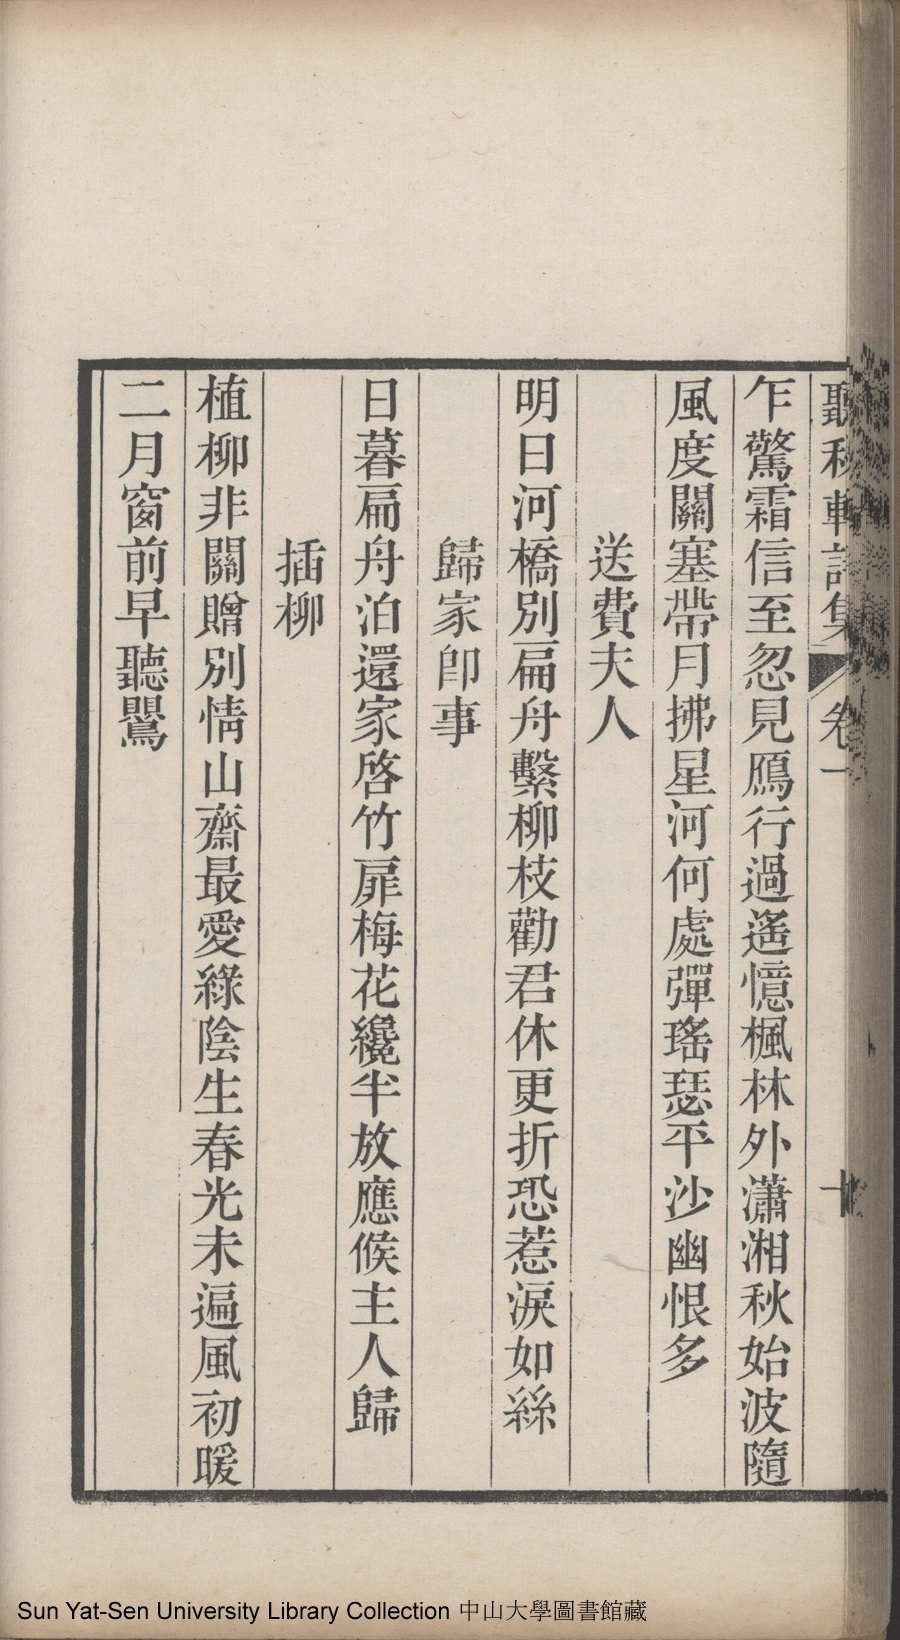 聽秋軒詩集 卷一 十
乍驚霜信至忽見鴈行過遙憶楓林外瀟湘秋始波隨
風度關塞帶月拂星河何處彈瑤瑟平沙幽恨多
送費夫人
明日河橋別扁舟繫柳枝勸君休更折恐惹淚如絲
歸家卽事
日暮扁舟泊還家啓竹扉梅花纔半放應候主人歸
插柳
植柳非關贈別情山齋最愛綠陰生春光未遍風初暖
二月窗前早聽鸎
Sun Yat-Sen University Library Collection 中山大學圖書館藏